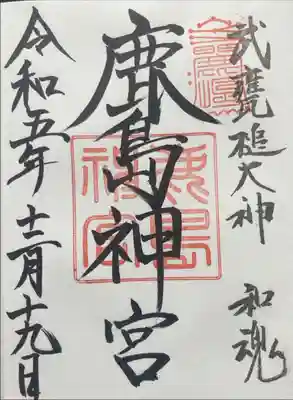 武甕槌大神 和魂
鹿島神宮
鹿島
神宮
令和五年十二月十九日